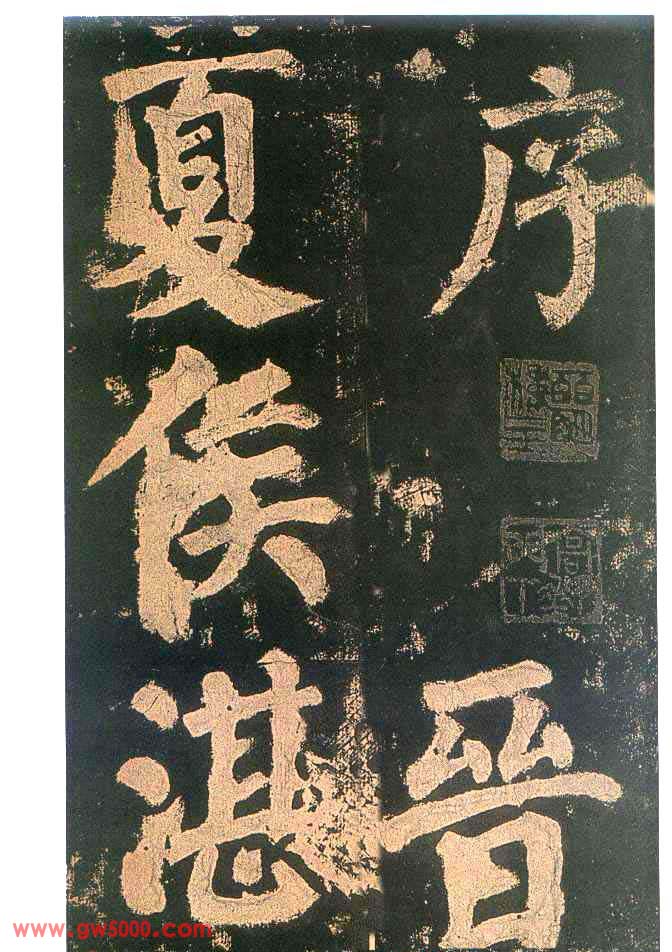 序
晉
夏侯湛
www.gw5000.com